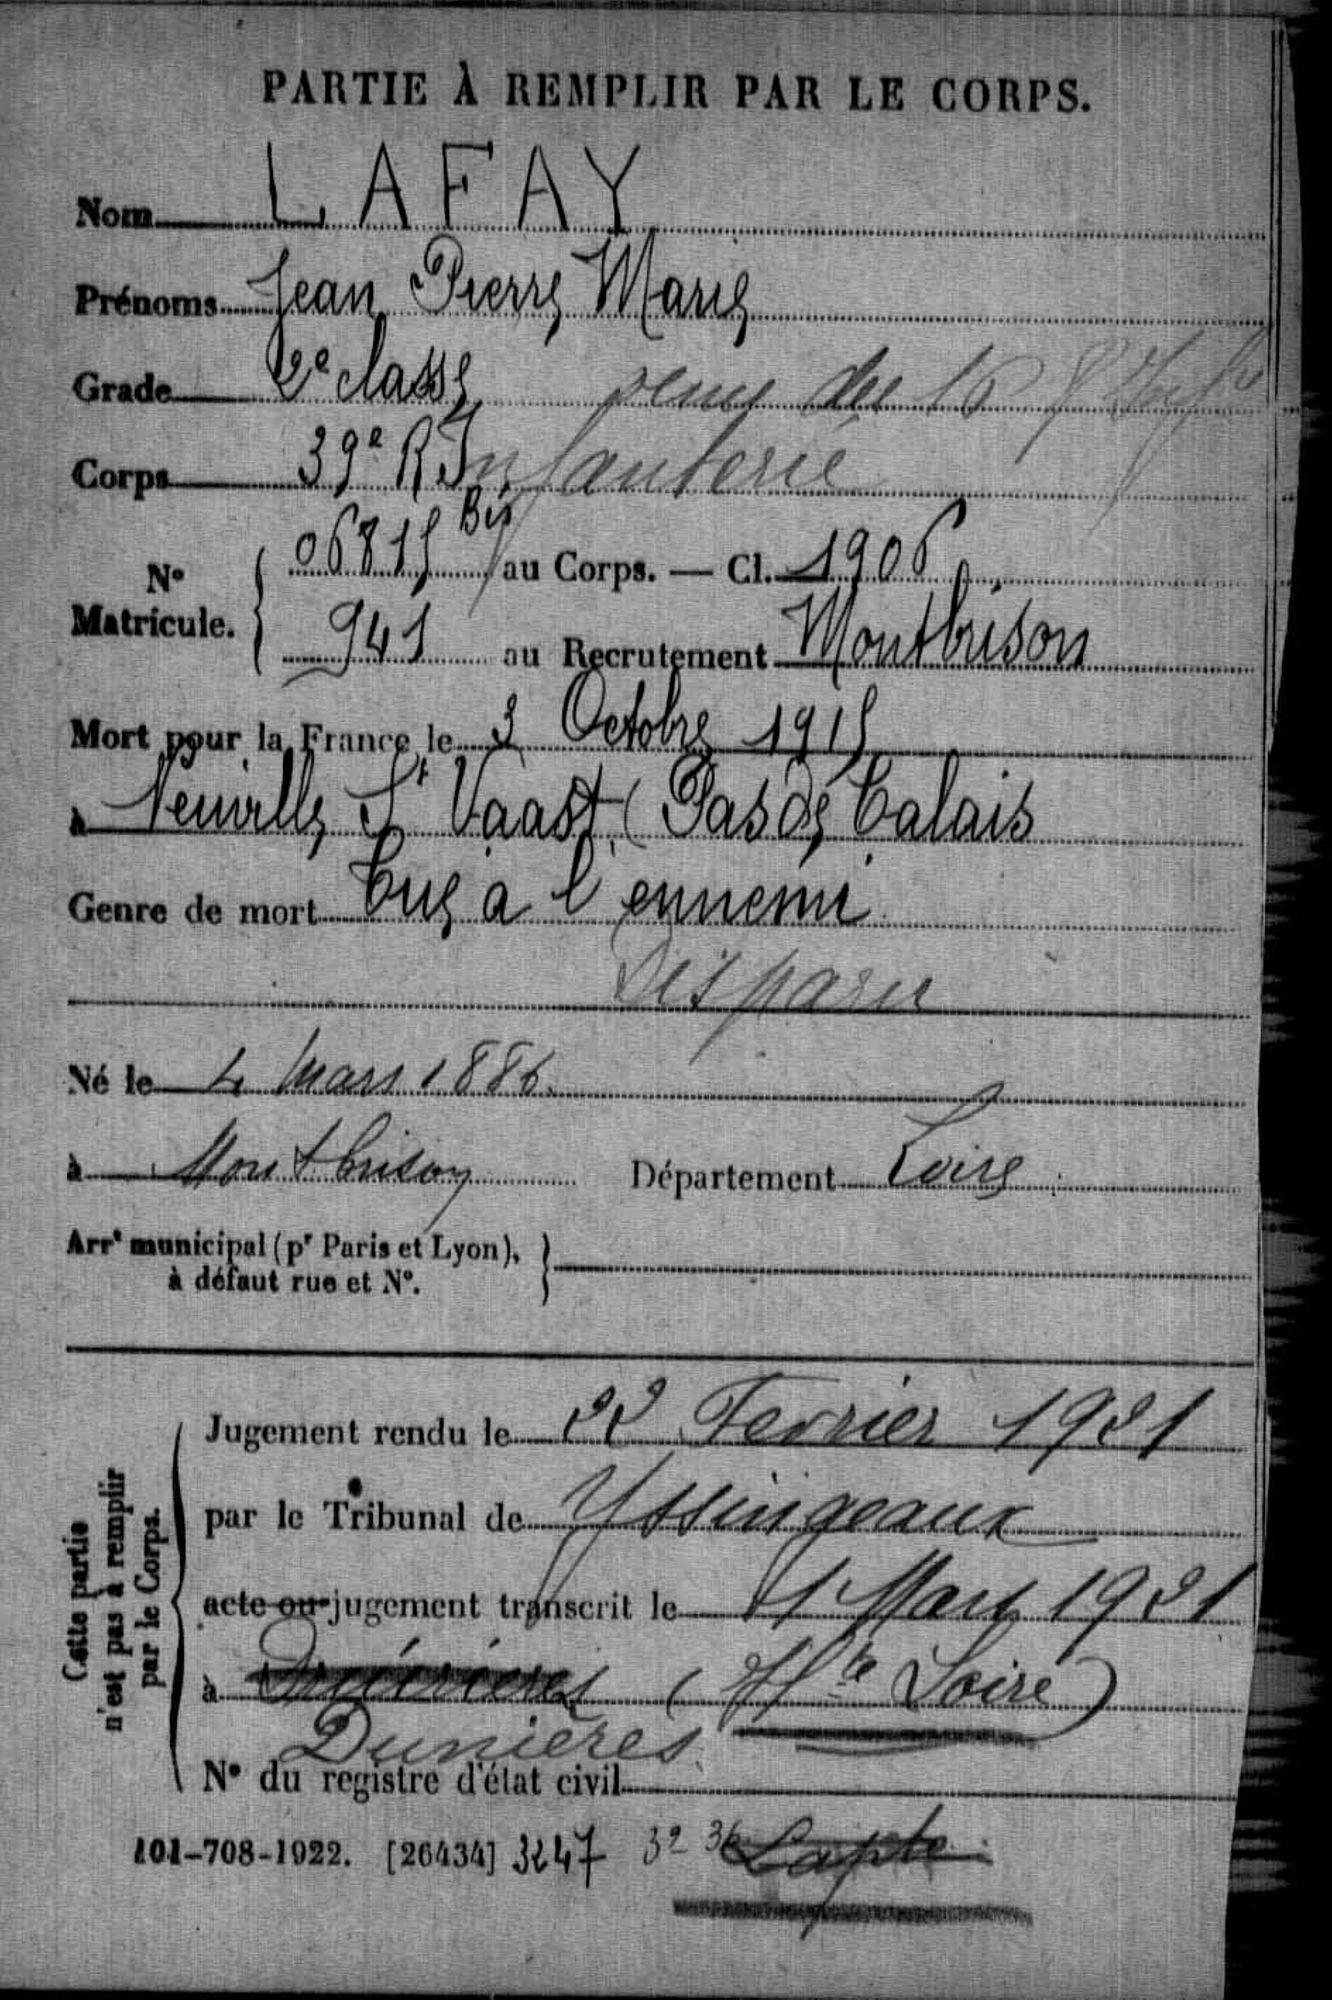 PARTIE À REMPLIR PAR LE CORPS.
Nom LAFAY
Prénoms Jean Pierre Marie
Grade 2e classe venu du 16
Corps 39e R Infanterie
N° Matricule. 06815 Bis au Corps. — Cl. 1906
941 au Recrutement Montbrison
Mort pour la France le 3 Octobre 1915
à Neuville St Vaast (Pas de Calais
Genre de mort Tué a l'ennemi
Disparu
Né le 4 Mars 1886
à Montbrison Département Loire
Arrt municipal (pr Paris et Lyon),
à défaut rue et N°.
Cette partie
n'est pas à remplir
par le Corps.
Jugement rendu le 22 Fevrier 1921
par le Tribunal de Yssingeaux
acte ou jugement transcrit le 11 Mars 1921
à (Hte Loire)
Dunières
N° du registre d'état civil
101-708-1922. [26434] 3247 Lapte